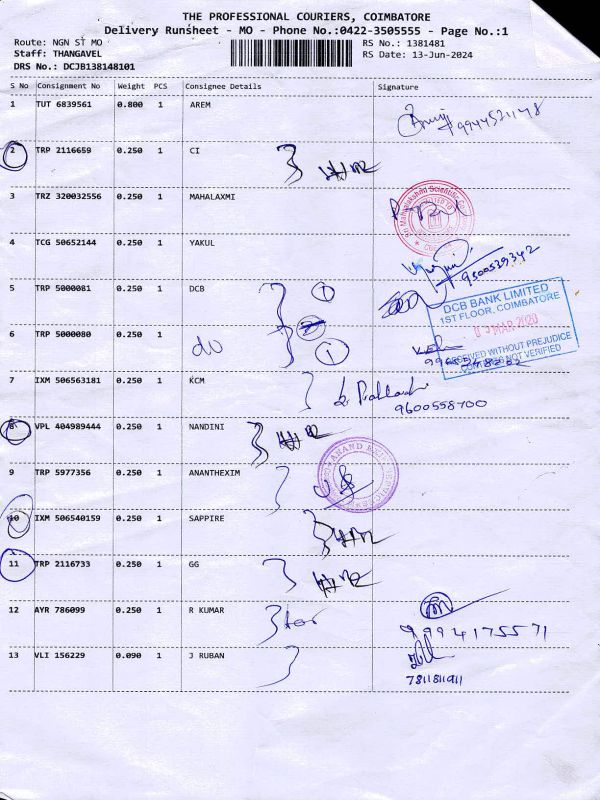 THE PROFESSIONAL COURIERS, COIMBATORE
Delivery Runsheet - MO - Phone No.:0422-3505555 - Page No.:1
Route: NGN ST MO RS No.: 1381481
Staff: THANGAVEL RS Date: 13-Jun-2024
DRS No.: DCJB138148101
S No Consignment No Weight PCS Consignee Details Signature
1 TUT 6839561 0.800 1 AREM
2 TRP 2116659 0.250 1 CI
3 TRZ 320032556 0.250 1 MAHALAXMI
4 TCG 50652144 0.250 1 YAKUL
9500539342
5 TRP 5000081 0.250 1 DCB 1
DCB BANK LIMITED
1ST FLOOR, COIMBATORE
MAR 2020
RECEIVED WITHOUT PREJUDICE
NOT VERIFIED
6 TRP 5000080 0.250 1 do 1
7 IXM 506563181 0.250 1 KCM
9600558700
8 VPL 404989444 0.250 1 NANDINI
9 TRP 5977356 0.250 1 ANANTHEXIM
10 IXM 506540159 0.250 1 SAPPIRE
11 TRP 2116733 0.250 1 GG
12 AYR 786099 0.250 1 R KUMAR
9994175571
13 VLI 156229 0.090 1 J RUBAN
7811811911